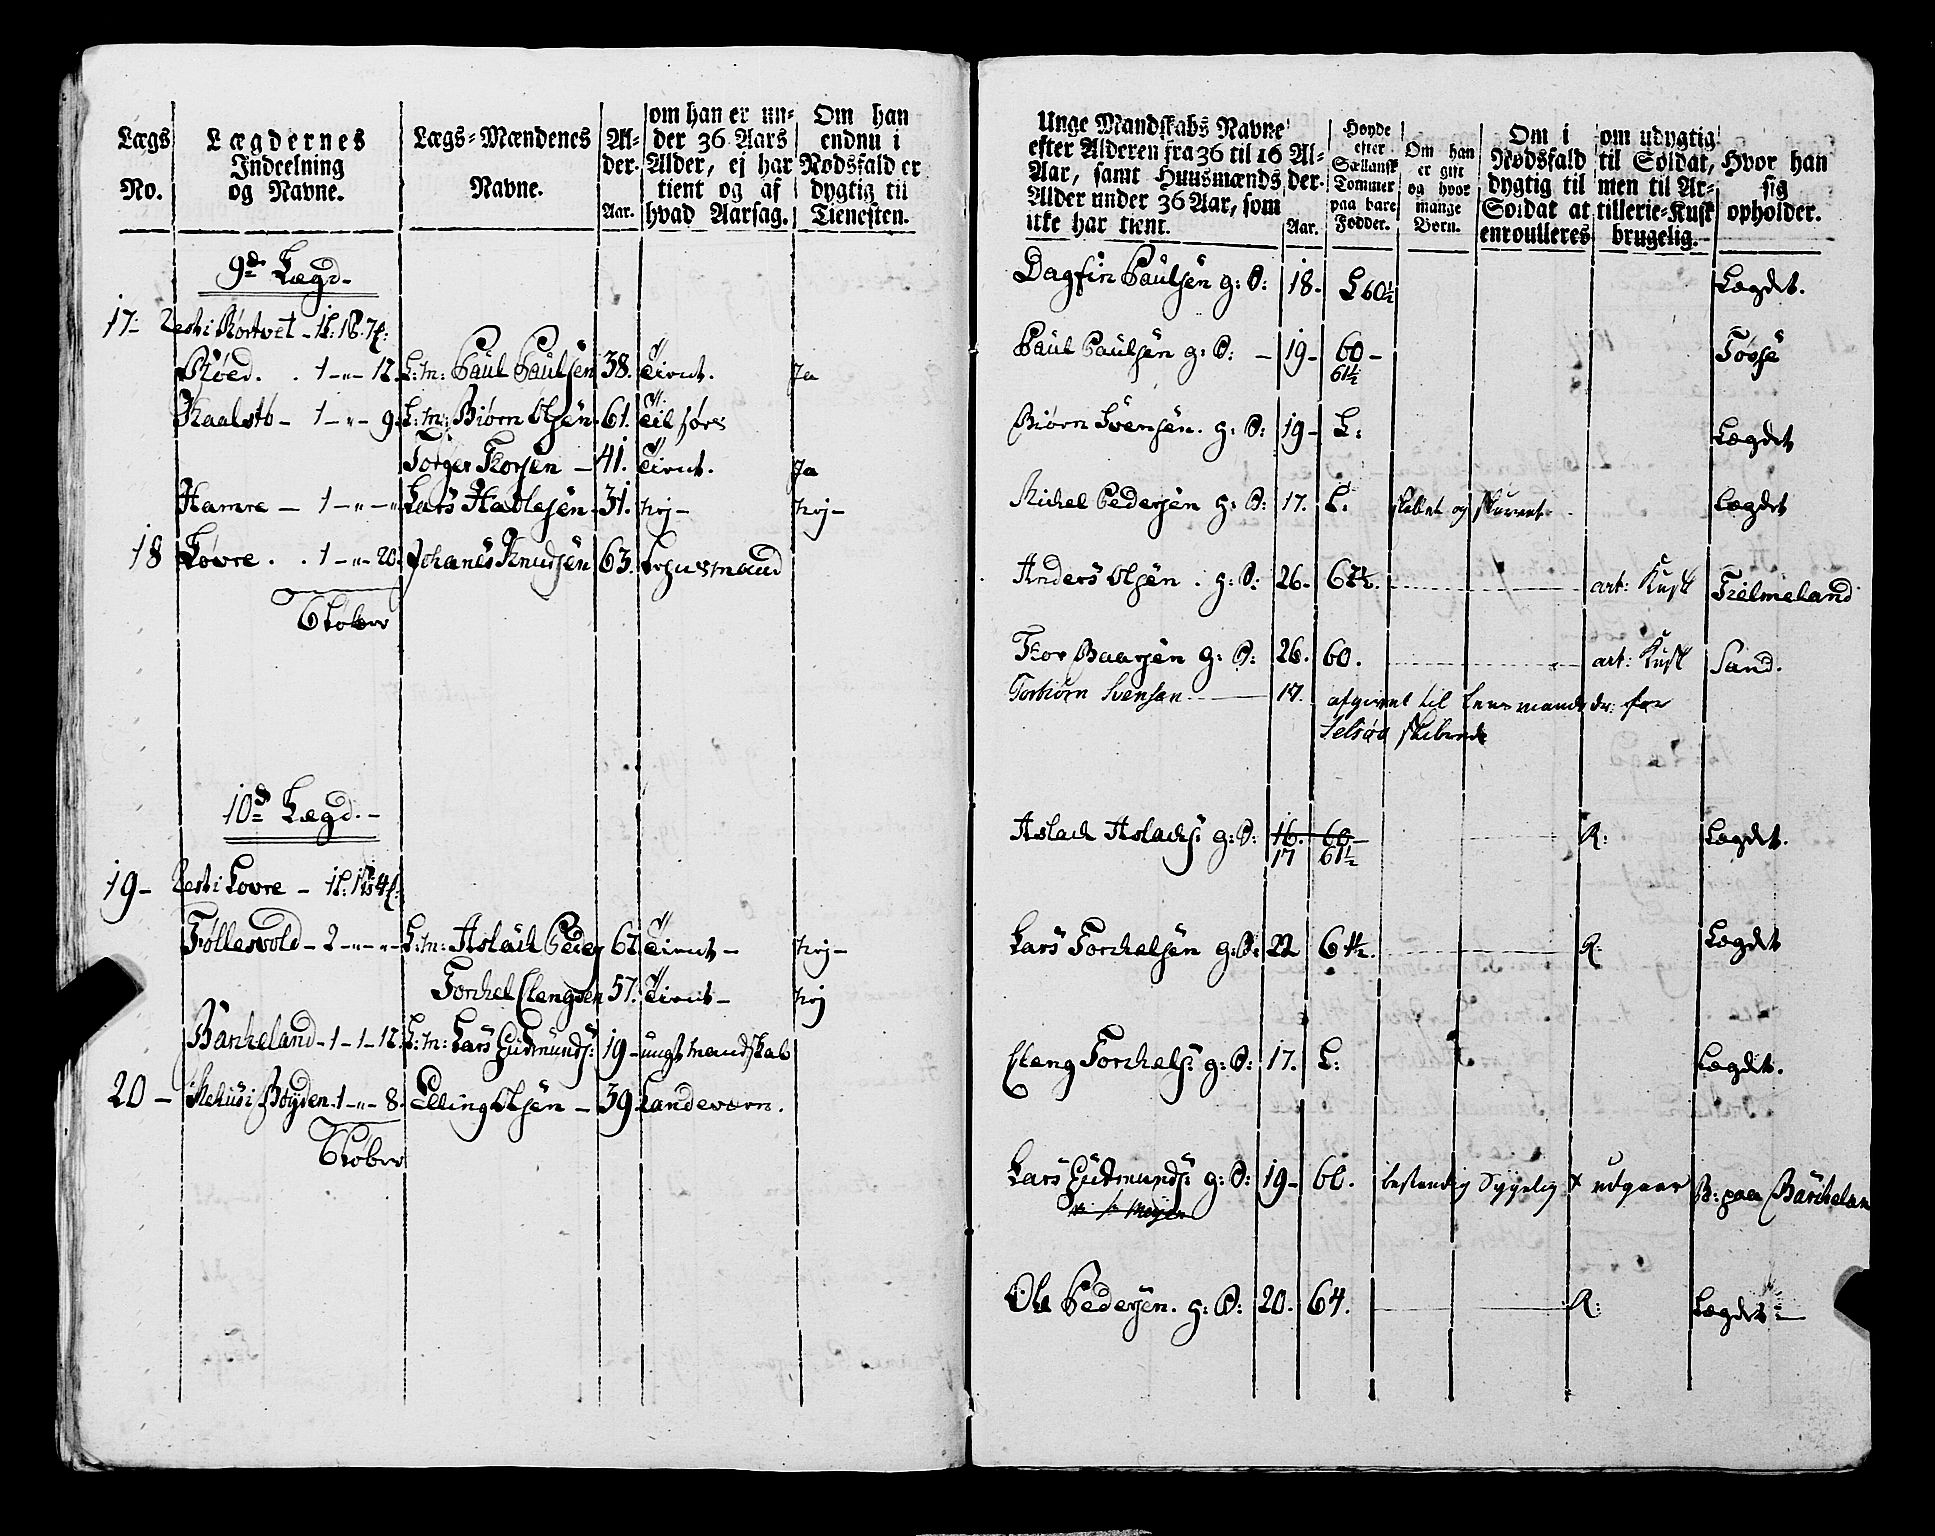 Lægs No.
Lægdernes Indeelning og Navne.
Lægs-Mændenes Navne.
Al-der. Aar.
om han er un-der 36 Aars Alder, ej har tient og af hvad Aarsag.
Om han endnu i Nødsfald er dygtig til Tienesten.
9de Lægd.
17. Rest i
Røed. . 1 - " - 12. L:m: Paul Paulsen 38. Tient. Ja
1 - " - 9. L:m: Biørn Olsen 61.
Torger Thorsen - 41. Tient. Ja
Hamre - 1 - " - " Lars Hadlesen 31. Nej - Nej -
18 Lovre . . 1 - " - 20. Johanes Knudsen 63.
10de Lægd. -
19 - Rest i Lovre -
Føllesvold - 2 - " - " - L:m: Aslach Peders 62 Tient - Nej -
Torchel Elengsen 57. Tient - Nej
Barkeland - 1 - 1 - 12. L:m: Lars Gudmunds: 19 - ungt mandskab
20 - 1 - " - 8. Elling Olsen - 39. Landeværn.
Unge Mandskabs Navne efter Alderen fra 36 til 16 Aar, samt Huusmænds Alder under 36 Aar, som ikke har tient.
Al-der. Aar.
Høyde efter Sællansk Tommer paa bare Fødder.
Om han er gift og hvor mange Børn.
Om i Nødsfald dygtig til Soldat at enroulleres
om udygtig til Soldat, men til Ar-tillerie-Kusk brugelig.
Hvor han sig opholder.
Dagfin Paulsen g: D: 18. L 60½ Lægdet.
Paul Paulsen g: D: - 19 - 60 - Tøsse
61½
Biørn Svensen. g: D: 19 - L: Lægdet
Michel Pedersen g: D: 17. L. skallet og skurvet Lægdet
Anders Olsen . g: D: 26. art: Kusk Fielmeland
Thor Baarsen g: D: 26. 60. art: Kusk Sand.
Torbiørn Svensen 17. afgivet til
Aslach Aslachs: g: D: 16. 60 - R: Lægdet.
17 61½
Lars Torchelsen g: D: 22 61½. R: Lægdet
Eleng Torchels: g: D: 17. L: Lægdet.
Lars Gudmunds: g: D: 19 - 60. bestendig Sygelig + udgaar B: paa Barchelan
Ole Pedersen. g: D: 20. 64. R: Lægdet -